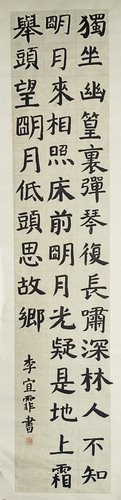 獨坐幽篁裏彈琴復長嘯深林人不知
明月來相照床前明月光疑是地上霜
舉頭望明月低頭思故鄉
李宜霏書